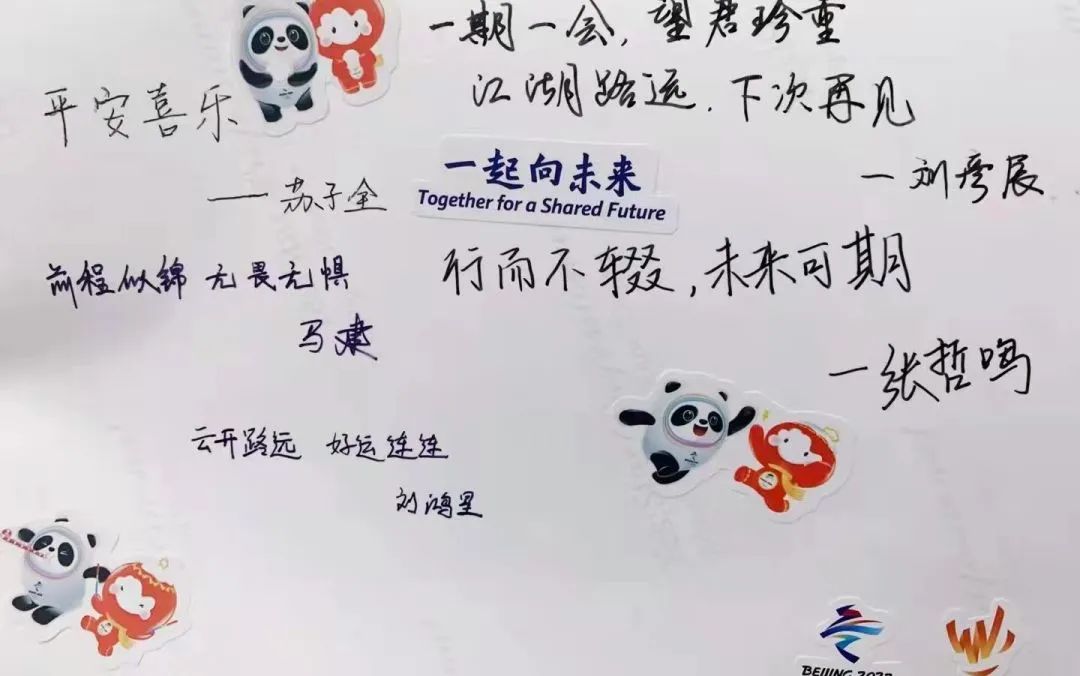 一期一会，望君珍重
江湖路远．下次再见
一刘彦辰
平安喜乐
一苏子全
一起向未来
Together for a Shared Future
行而不辍，未来可期
一张哲鸣
前程似锦 无畏无惧
马建
云开路远 好运连连
刘鸿星
BEIJING 2022